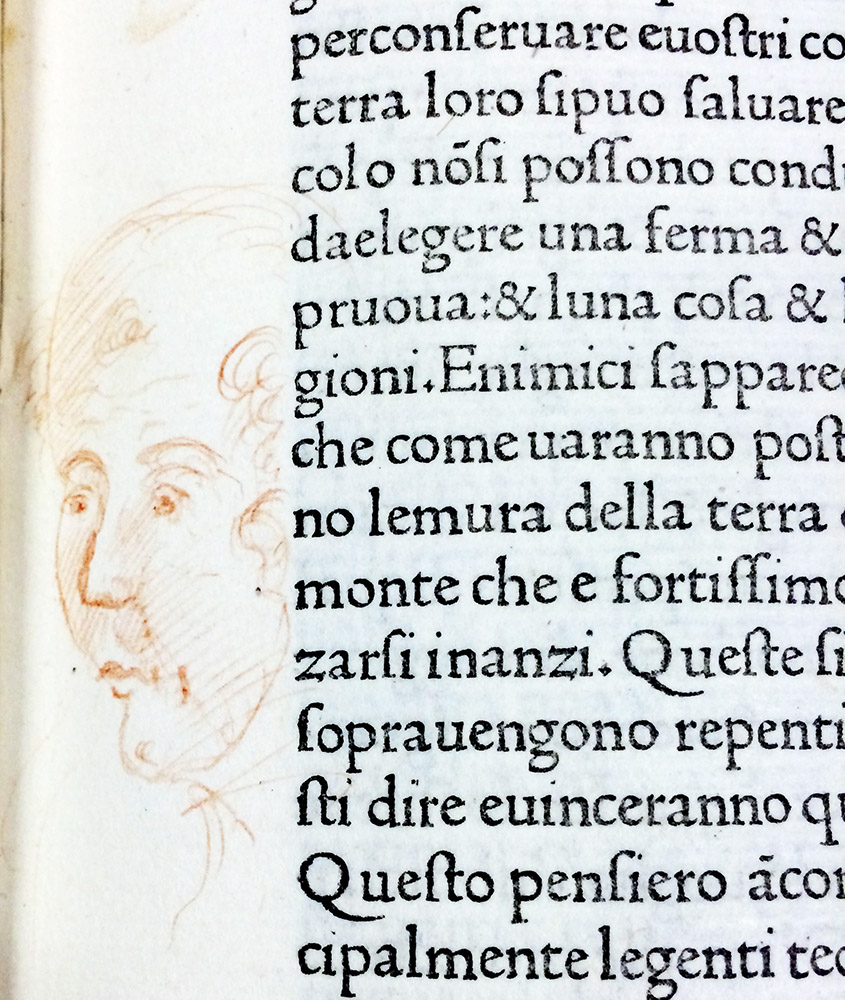 perconſeruare euoſtri co
terra loro ſipuo ſaluare
colo nōſi poſſono cond
daelegere una ferma &
pruoua:& luna coſa &
gioni. Enimici ſappare
che come uaranno poſt
no lemura della terra
monte che e fortiſſimo
zarſi inanzi. Queſte ſi
ſoprauengono repenti
ſti dire euinceranno qu
Queſto penſiero ācor
cipalmente legenti tec